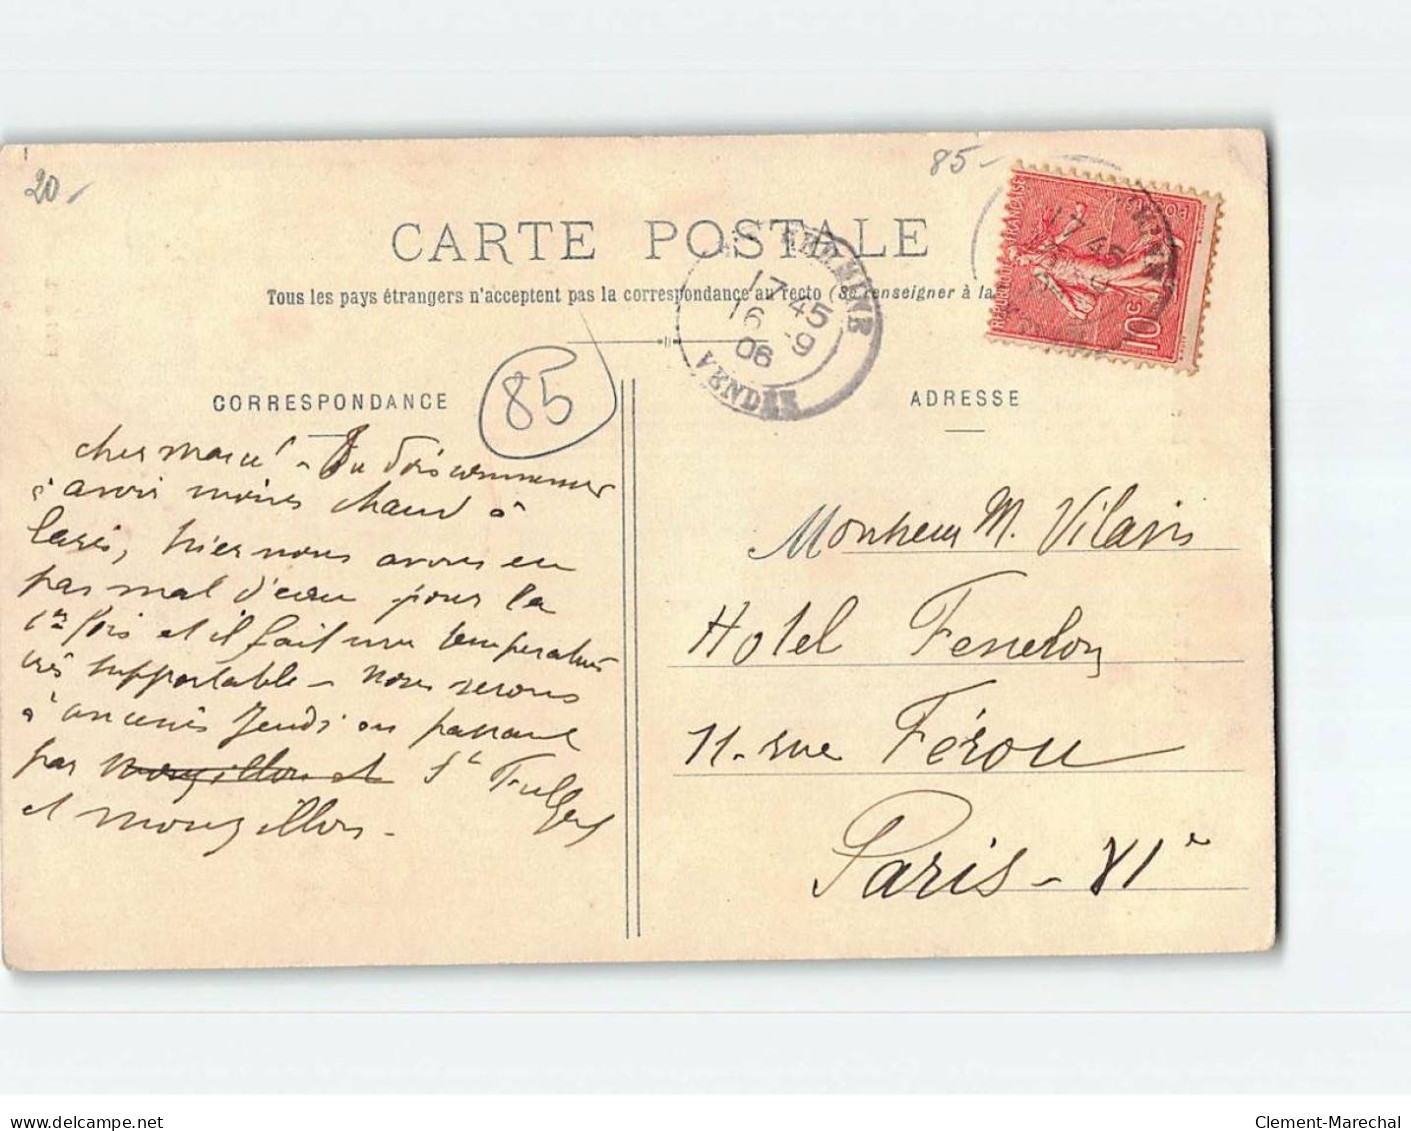 20
85-
CARTE POSTALE
Tous les pays étrangers n'acceptent pas la correspondance au recto (Se renseigner à la
17 45
16 -9
06
VENDÉE
RÉPUBLIQUE FRANÇAISE
POSTES
10c
17 45
85
CORRESPONDANCE
ADRESSE
cher Marcel - Tu dois commencer
à avoir moins chaud à
Paris, hier nous avons eu
pas mal d'eau pour la
1re fois et il fait une température
très supportable - Nous serons
à ancenis Jeudi en passant
par mouzillon et St Fulgent
et mouzillon -
Monsieur M. Vilain
Hotel Fenelon
11. rue Férou
Paris - VIe
www.delcampe.net
Clement-Marechal